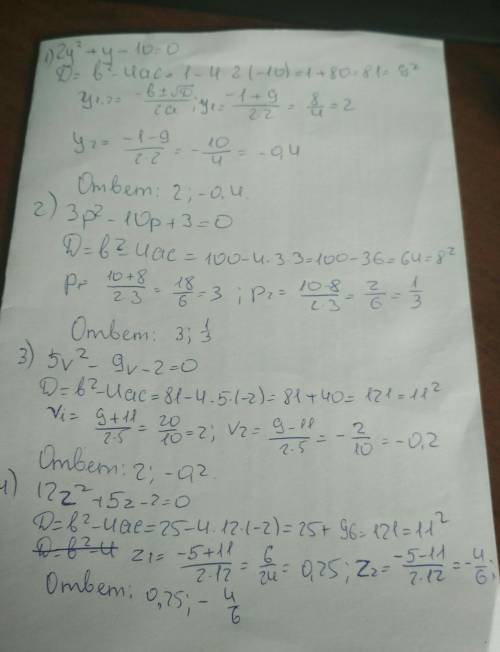 1) 2y² + y - 10 = 0
D = b² - 4ac = 1 - 4·2·(-10) = 1 + 80 = 81 = 9²
y₁,₂ = (-b ± √D)/2a ; y₁ = (-1 + 9)/(2·2) = 8/4 = 2
y₂ = (-1 - 9)/(2·2) = -10/4 = -0,4
Ответ: 2; -0,4.
2) 3p² - 10p + 3 = 0
D = b² - 4ac = 100 - 4·3·3 = 100 - 36 = 64 = 8²
p₁ = (10 + 8)/(2·3) = 18/6 = 3 ; p₂ = (10 - 8)/(2·3) = 2/6 = 1/3
Ответ: 3; 1/3
3) 5v² - 9v - 2 = 0
D = b² - 4ac = 81 - 4·5·(-2) = 81 + 40 = 121 = 11²
v₁ = (9 + 11)/(2·5) = 20/10 = 2; v₂ = (9 - 11)/(2·5) = -2/10 = -0,2
Ответ: 2; -0,2.
4) 12z² + 5z - 2 = 0
D = b² - 4ac = 25 - 4·12·(-2) = 25 + 96 = 121 = 11²
D = b² - 4 z₁ = (-5 + 11)/(2·12) = 6/24 = 0,25; z₂ = (-5 - 11)/(2·12) = -4/6;
Ответ: 0,25; -4/6